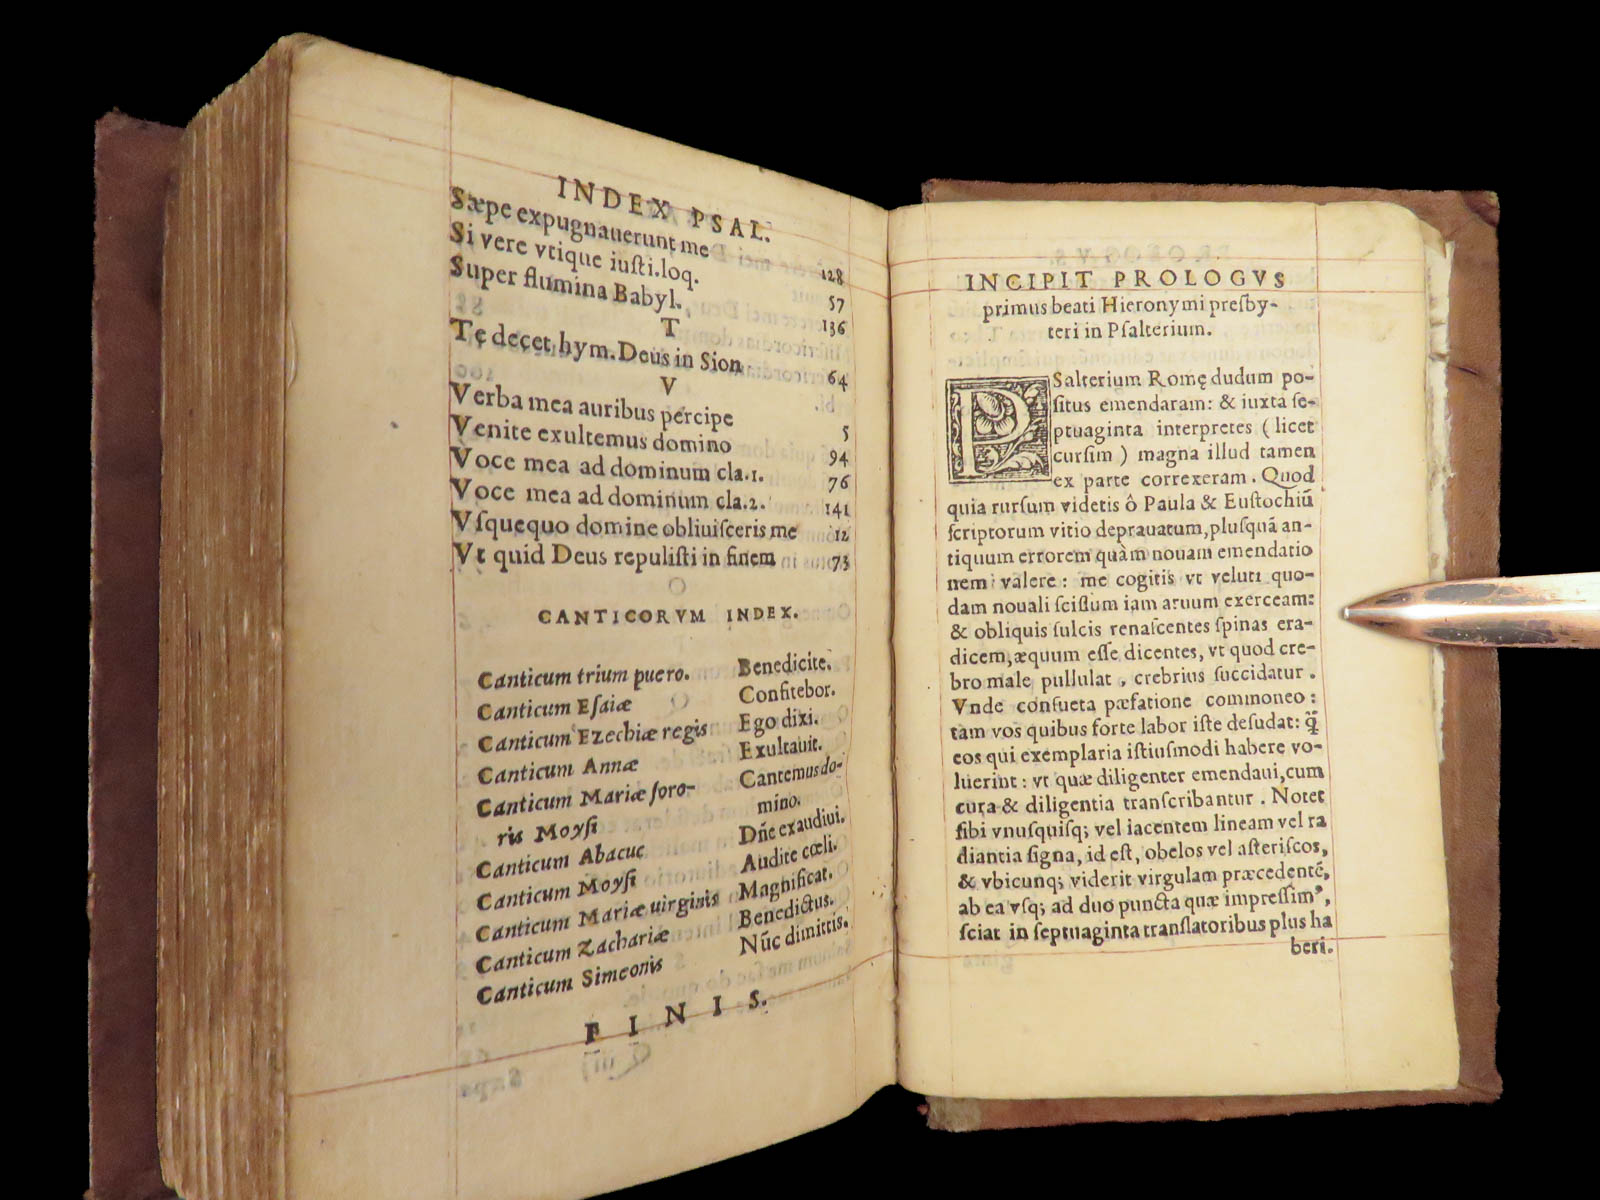 INDEX PSAL.
Sæpe expugnauerunt me 128
Si vere vtique iusti.loq. 57
Super flumina Babyl. 136
T
Te decet hym.Deus in Sion 64
V
Verba mea auribus percipe 5
Venite exultemus domino 94
Voce mea ad dominum cla.1. 76
Voce mea ad dominum cla.2. 141
Vsquequo domine obliuisceris me 12
Vt quid Deus repulisti in finem 73
CANTICORVM INDEX.
Canticum trium puero. Benedicite.
Canticum Esaiæ Confitebor.
Canticum Ezechiæ regis Ego dixi.
Canticum Annæ Exultauit.
Canticum Mariæ soro- Cantemus do-
ris Moysi mino.
Canticum Abacuc Dñe exaudiui.
Canticum Moysi Audite cœli.
Canticum Mariæ uirginis Magnificat.
Canticum Zachariæ Benedictus.
Canticum Simeonis Nũc dimittis.
FINIS.
INCIPIT PROLOGVS
primus beati Hieronymi presby-
teri in Psalterium.
PSalterium Romę dudum po-
situs emendaram: & iuxta se-
ptuaginta interpretes (licet
cursim) magna illud tamen
ex parte correxeram. Quod
quia rursum videtis ô Paula & Eustochiũ
scriptorum vitio deprauatum,plusquã an-
tiquum errorem quàm nouam emendatio
nem valere: me cogitis vt veluti quo-
dam nouali scissum iam aruum exerceam:
& obliquis sulcis renascentes spinas era-
dicem,æquum esse dicentes, vt quod cre-
bro male pullulat, crebrius succidatur.
Vnde consueta pæfatione commoneo:
tam vos quibus forte labor iste desudat: q̃
eos qui exemplaria istiusmodi habere vo-
luerint: vt quæ diligenter emendaui,cum
cura & diligentia transcribantur. Notet
sibi vnusquisq; vel iacentem lineam vel ra
diantia signa, id est, obelos vel asteriscos,
& vbicunq; viderit virgulam præcedentẽ,
ab ea vsq; ad duo puncta quæ impressim⁹,
sciat in septuaginta translatoribus plus ha
beri.